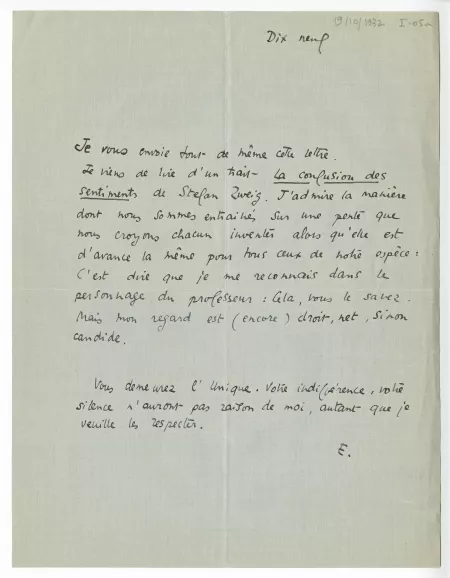 19/10/1932 I-05a
Dix neuf
Je vous envoie tout de même cette lettre.
Je viens de lire d'un trait La confusion des
sentiments de Stefan Zweig. J'admire la manière
dont nous sommes entraînés sur une pente que
nous croyons chacun inventer alors qu'elle est
d'avance la même pour tous ceux de notre espèce :
C'est dire que je me reconnais dans le
personnage du professeur : Cela, vous le savez.
Mais mon regard est (encore) droit, net, sinon
candide.
Vous demeurez l'Unique. Votre indifférence, votre
silence n'auront pas raison de moi, autant que je
veuille les respecter.
E.